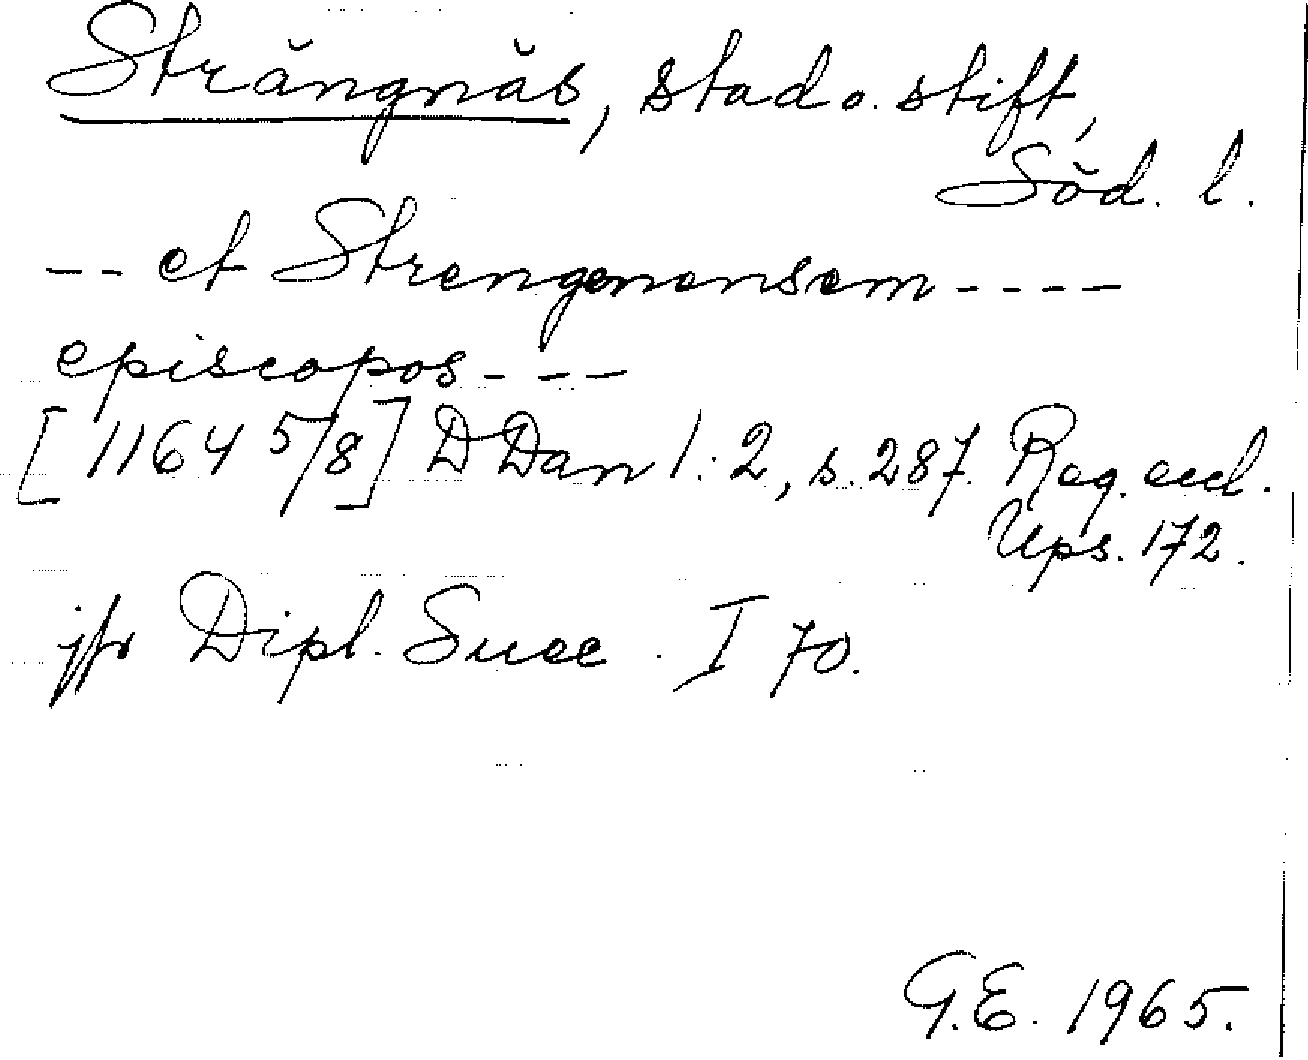 Strängnäs, stad o. stift,
Söd. l.
-- et Strengenensem ----
episcopos - --
[1164 5/8] DDan 1:2, s. 287. Reg. eccl.
Ups. 172.
jfr Dipl. Suec. I 70.
G.E. 1965.